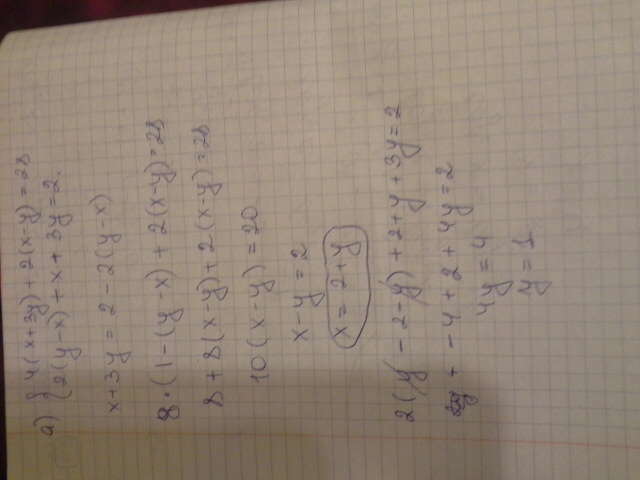 а) { 4(x+3y)+2(x-y)=28
2(y-x)+x+3y=2.
x+3y=2-2(y-x)
8·(1-(y-x)+2(x-y)=28
8+8(x-y)+2(x-y)=28
10(x-y)=20
x-y=2
x=2+y
2(y-2-y)+2+y+3y=2
-4+2+4y=2
4y=4
y=1